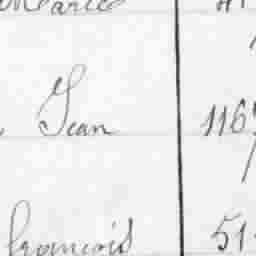 Marie 41
Jean 116
François 51